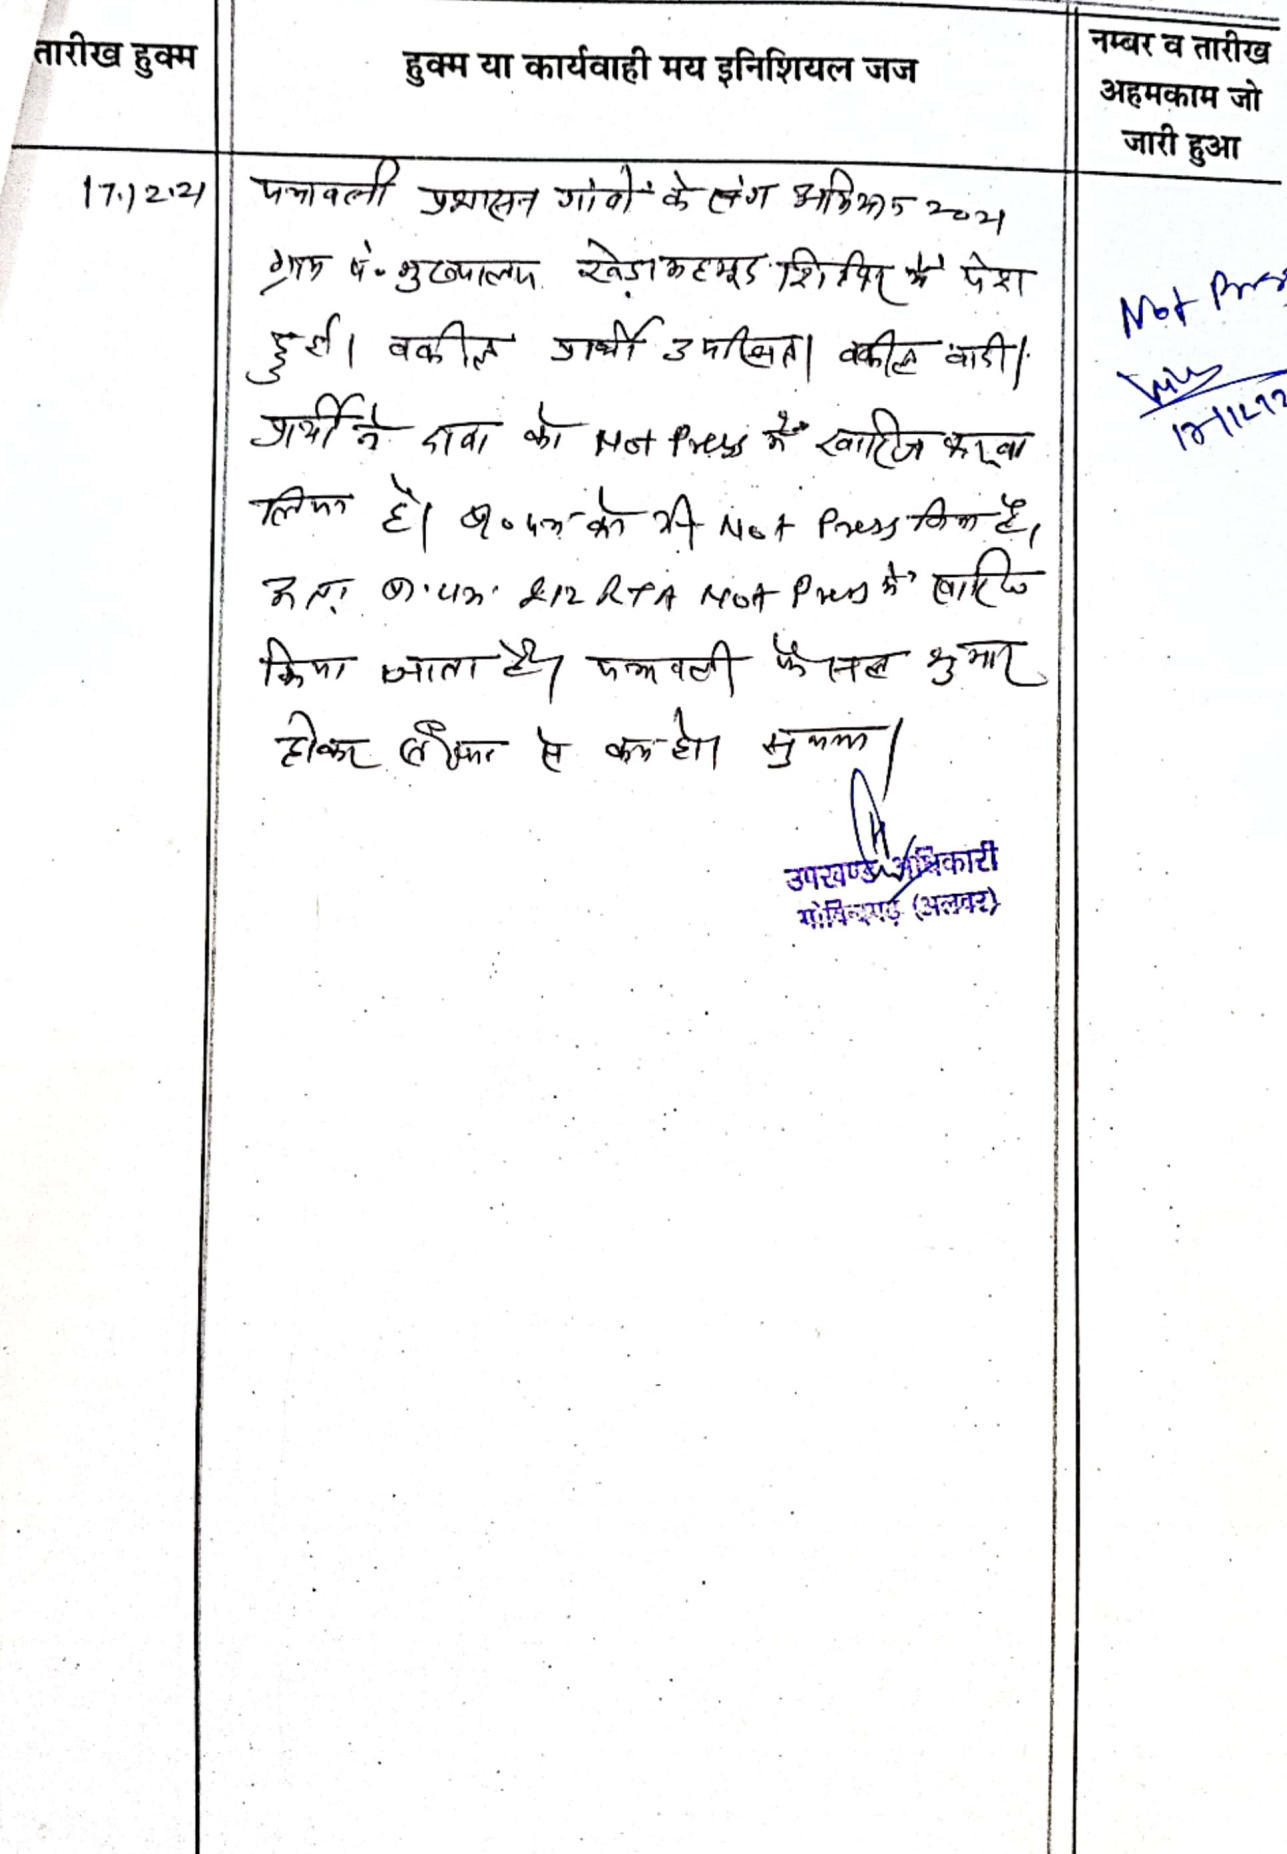 तारीख हुक्म
हुक्म या कार्यवाही मय इनिशियल जज
नम्बर व तारीख
अहमकाम जो
जारी हुआ
17.12.21
पत्रावली प्रशासन गांवों के संग अभियान 2021
ग्राम पं. मुख्यालय खेड़ा महमूद शिविर में पेश
हुई। वकील प्रार्थी उपस्थित। वकील वादी।
प्रार्थी ने दावा को Not Press में खारिज करवा
लिया है। प्रा० पत्र को भी Not Press किया है,
अतः प्रा. पत्र 212 RTA Not Press में खारिज
किया जाता है। पत्रावली फैसल शुमार
होकर से कम हो।
Not Press
उपखण्ड अधिकारी
गोविन्दगढ़ (अलवर)